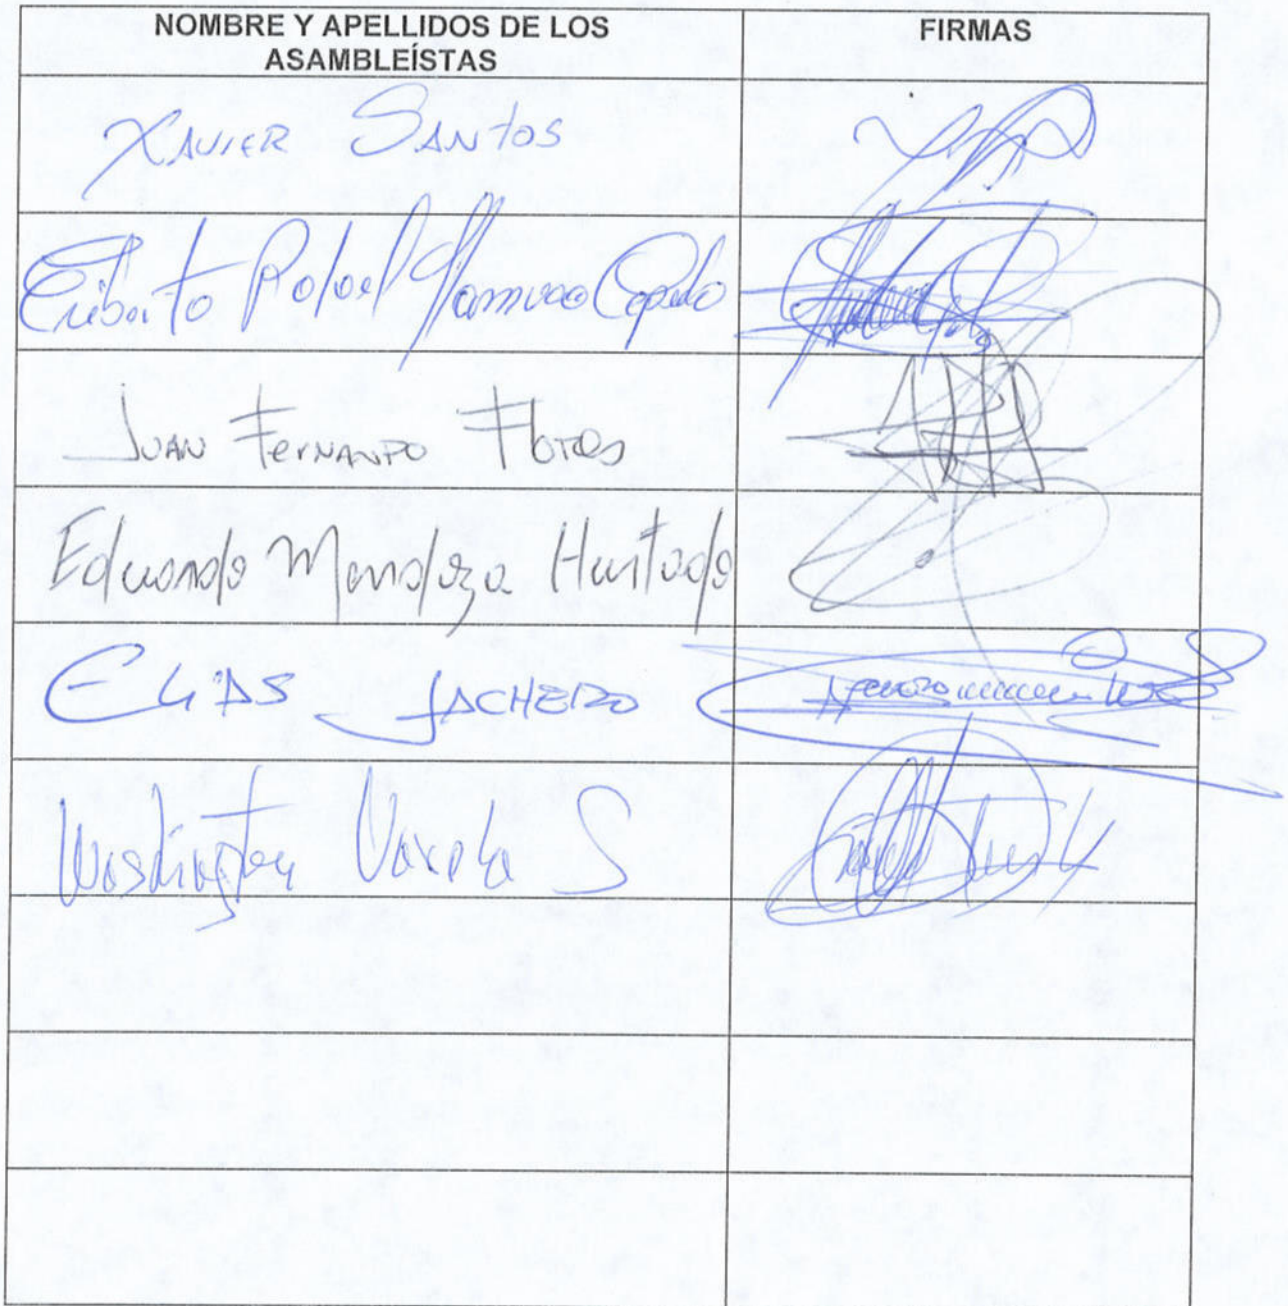 NOMBRE Y APELLIDOS DE LOS ASAMBLEÍSTAS
FIRMAS
XAVIER SANTOS
Eriberto Rafael
JUAN FERNANDO Flores
Eduardo Mendoza Hurtado
ELIAS JACHERO
Washington Varela S